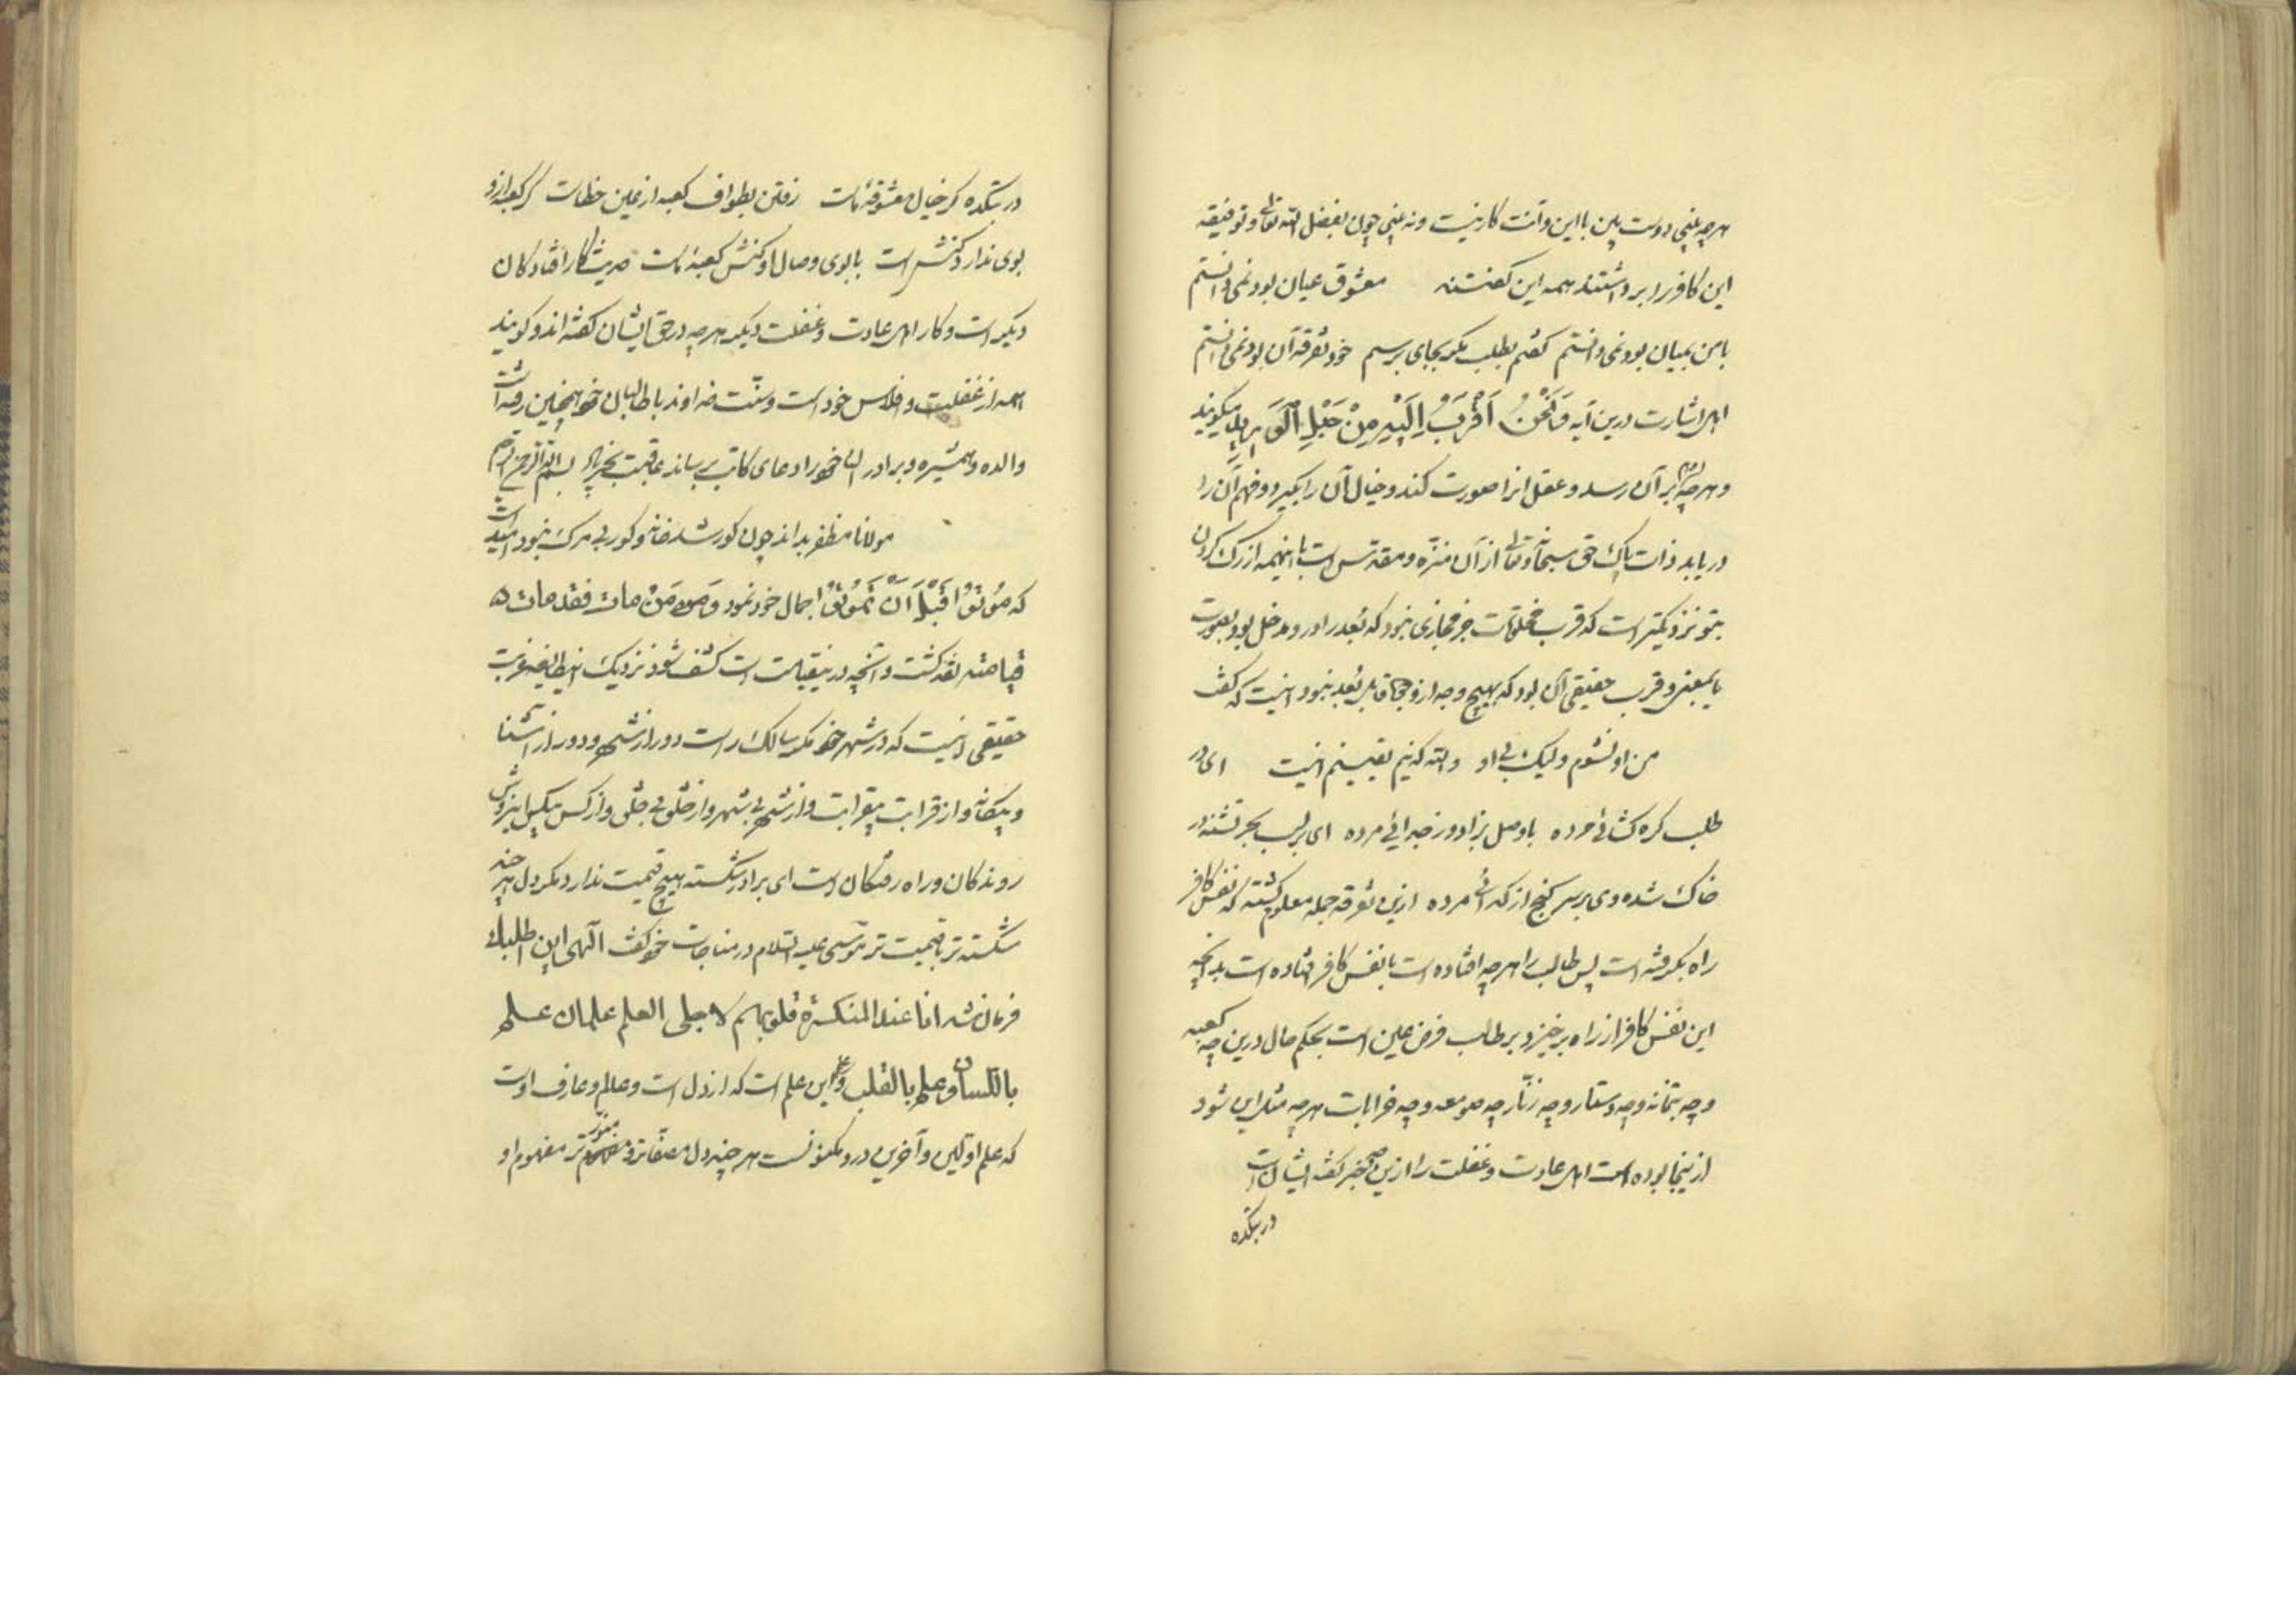 هرچه بینی دوست بین با این و آنت کار نیست ونه بینی چون بفضل الله تعالی و توفیقه
این کافر را برداشتند همه این گفتند معشوق عیان بود نمی دانستم
با من بمیان بود نمی دانستم گفتم بطلب مگر بجای برسم خود تفرقه آن بود نمی دانستم
اهل اشارت درین آیه وَنَحْنُ اَقْرَبُ اِلَیْهِ مِنْ حَبْلِ الْوَرِیدِ میگویند
و هرچه وهم بر آن رسد و عقل انرا صورت کند و خیال آن را بگیرد و فهم آن را
دریابد ذات پاک حق سبحانه و تعالی از آن منزّه و مقدّس است با اینهمه از رک کردن
بتو نزدیکتر است که قرب مخلوقات جز مجازی نبود که بُعد را در و مدخل بود بصورت
یا بمعنی و قرب حقیقی آن بود که بهیچ وجه از وجوه قابل بُعد نبود اینست که گفت
من او نشوم ولیک بی او والله که نیم یقینم اینست ای در
طلب کره کشائی مرده با وصل بزاد وز جدائی مرده ای بر لب بحر تشنه در
خاک شده وی بر سر کنج از کدائی مرده ازین تفرقه جمله معلوم کشته که نفس کافر
راه بکرفته است پس طالب را هرچه افتاده است با نفس کافر افتاده است بدانچه
این نفس کافر از راه برخیزد بر طالب فرض عین است بحکم حال درین چه کعبه
و چه بتخانه و چه دستار و چه زنّار چه صومعه و چه خرابات هرچه مثل این شود
ازینجا بوده است اهل عادت و غفلت را ازین چه خبر گفته ایشان است
در بتکده
در بتکده کر خیال معشوقهٔ ماست رفتن بطواف کعبه از عین خطاست کر کعبه ازو
بوی ندارد کنش است با بوی وصال او کنش کعبهٔ ماست حدیث و کار افتادکان
دیکر است و کار اهل عادت و غفلت دیکر هرچه در حق ایشان گفته اند و کویند
همه از غفلت و افلاس خود است و سنّت خداوند با طالبان خود همچنین رفته است
والده و همشیره و برادر ان خود را دعای کاتب برساند عاقبت بخیر باد بسم الله الرحمن الرحیم
مولانا مظفر بداند چون کور شد خانه و کور بی مرک نبود اینست
که مُوتُوا قَبْلَ اَنْ تَمُوتُوا جمال خود نمود وَ مَنْ مات فقد
قیامته نقد کشت و آنچه در قیامت است کشف شود نزدیک این طایفه غربت
حقیقی اینست که در شهر خود مکر سالک راست دور از شهر و دور از آشنا
و بیکانه و از قرابت بیقرابت و از شهر بی شهر و از خلق بی خلق و از کس بیکس این روش
روندکان و راه رفتکان است ای برادر شکسته هیچ قیمت ندارد مکر دل هر چند
شکسته تر با قیمت تر موسی علیه السلام در مناجات خود گفت الهی این اطلبک
فرمان شد انا عند المنکسرة قلوبهم لاجلی العلم علمان علم
باللسان و علم بالقلب و این علم است که از دل است و عالم و عارف اوست
که علم اوّلین و آخرین درو مکنونست هر چند دل مصفّاتر و منوّر تر مفهوم او